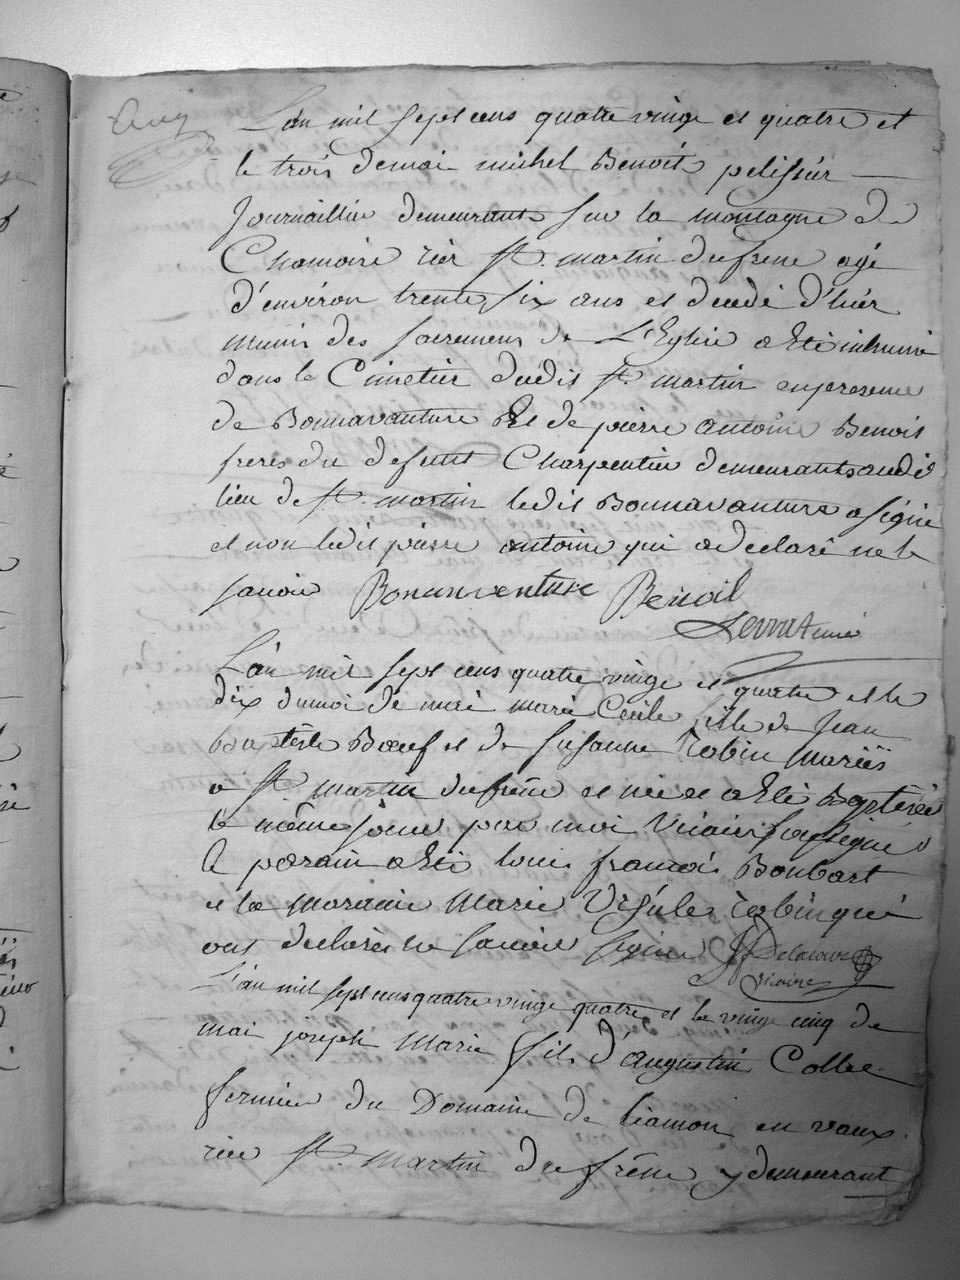 L'an mil sept cens quatre vingt et quatre et
le trois de mai michel Benoit pelissier
Journaillier demeurants sur la montagne de
Chamoire rier St. martin du frene agé
d'environ trente six ans et decedé d'hier
muni des sacremens de L'Eglise a été inhumé
dans le Cimetier dudit St. martin en presence
de Bonnavanture et de pierre antoine Benoit
freres du defunt Charpentier demeurants audit
lieu de St. martin ledit Bonnavanture a signé
et non ledit pierre antoine qui a declaré ne le
savoir Bonnaventure Benoit
L'an mil sept cens quatre vingt et quatre et le
dix du moi de mai marie Cecile fille de Jean
Baptiste Boeuf et de Susanne Robin mariés
a St. martin du frêne et née et a été Baptisée
le même jour par moi vicaire soussigné
le parain a été louis francois Boubart
et la maraine marie Ursule robin qui
ont declarés ne savoir signer Delacour
vicaire
L'an mil sept cens quatre vingt quatre et le vingt cinq de
mai joseph marie fils d'augustin Collet
fermier du Domaine de liamon en vaux
rier St. martin du frêne y demeurant